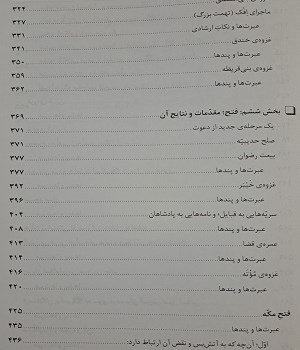 ۳۲۴
ماجرای افک (تهمت بزرگ) ۳۲۷
عبرت‌ها و نکات ارشادی ۳۳۱
غزوه‌ی خندق ۳۴۱
عبرت‌ها و پندها ۳۵۰
غزوه‌ی بنی‌قریظه ۳۵۹
عبرت‌ها و پندها ۳۶۲
بخش ششم: فتح؛ مقدّمات و نتایج آن ۳۶۹
یک مرحله‌ی جدید از دعوت ۳۷۱
صلح حدیبیّه ۳۷۱
بیعت رضوان ۳۷۷
عبرت‌ها و پندها ۳۷۷
غزوه‌ی خیبر ۳۹۲
عبرت‌ها و پندها ۳۹۶
سریّه‌هایی به قبایل؛ و نامه‌هایی به پادشاهان ۴۰۴
عبرت‌ها و پندها ۴۰۸
عمره‌ی قضا ۴۱۳
عبرت‌ها و پندها ۴۱۴
غزوه‌ی مؤته ۴۱۶
عبرت‌ها و پندها ۴۲۰
فتح مکّه ۴۲۵
عبرت‌ها و پندها ۴۳۵
اوّل: آن‌چه که به آتش‌بس و نقض آن ارتباط دارد: ۴۳۶